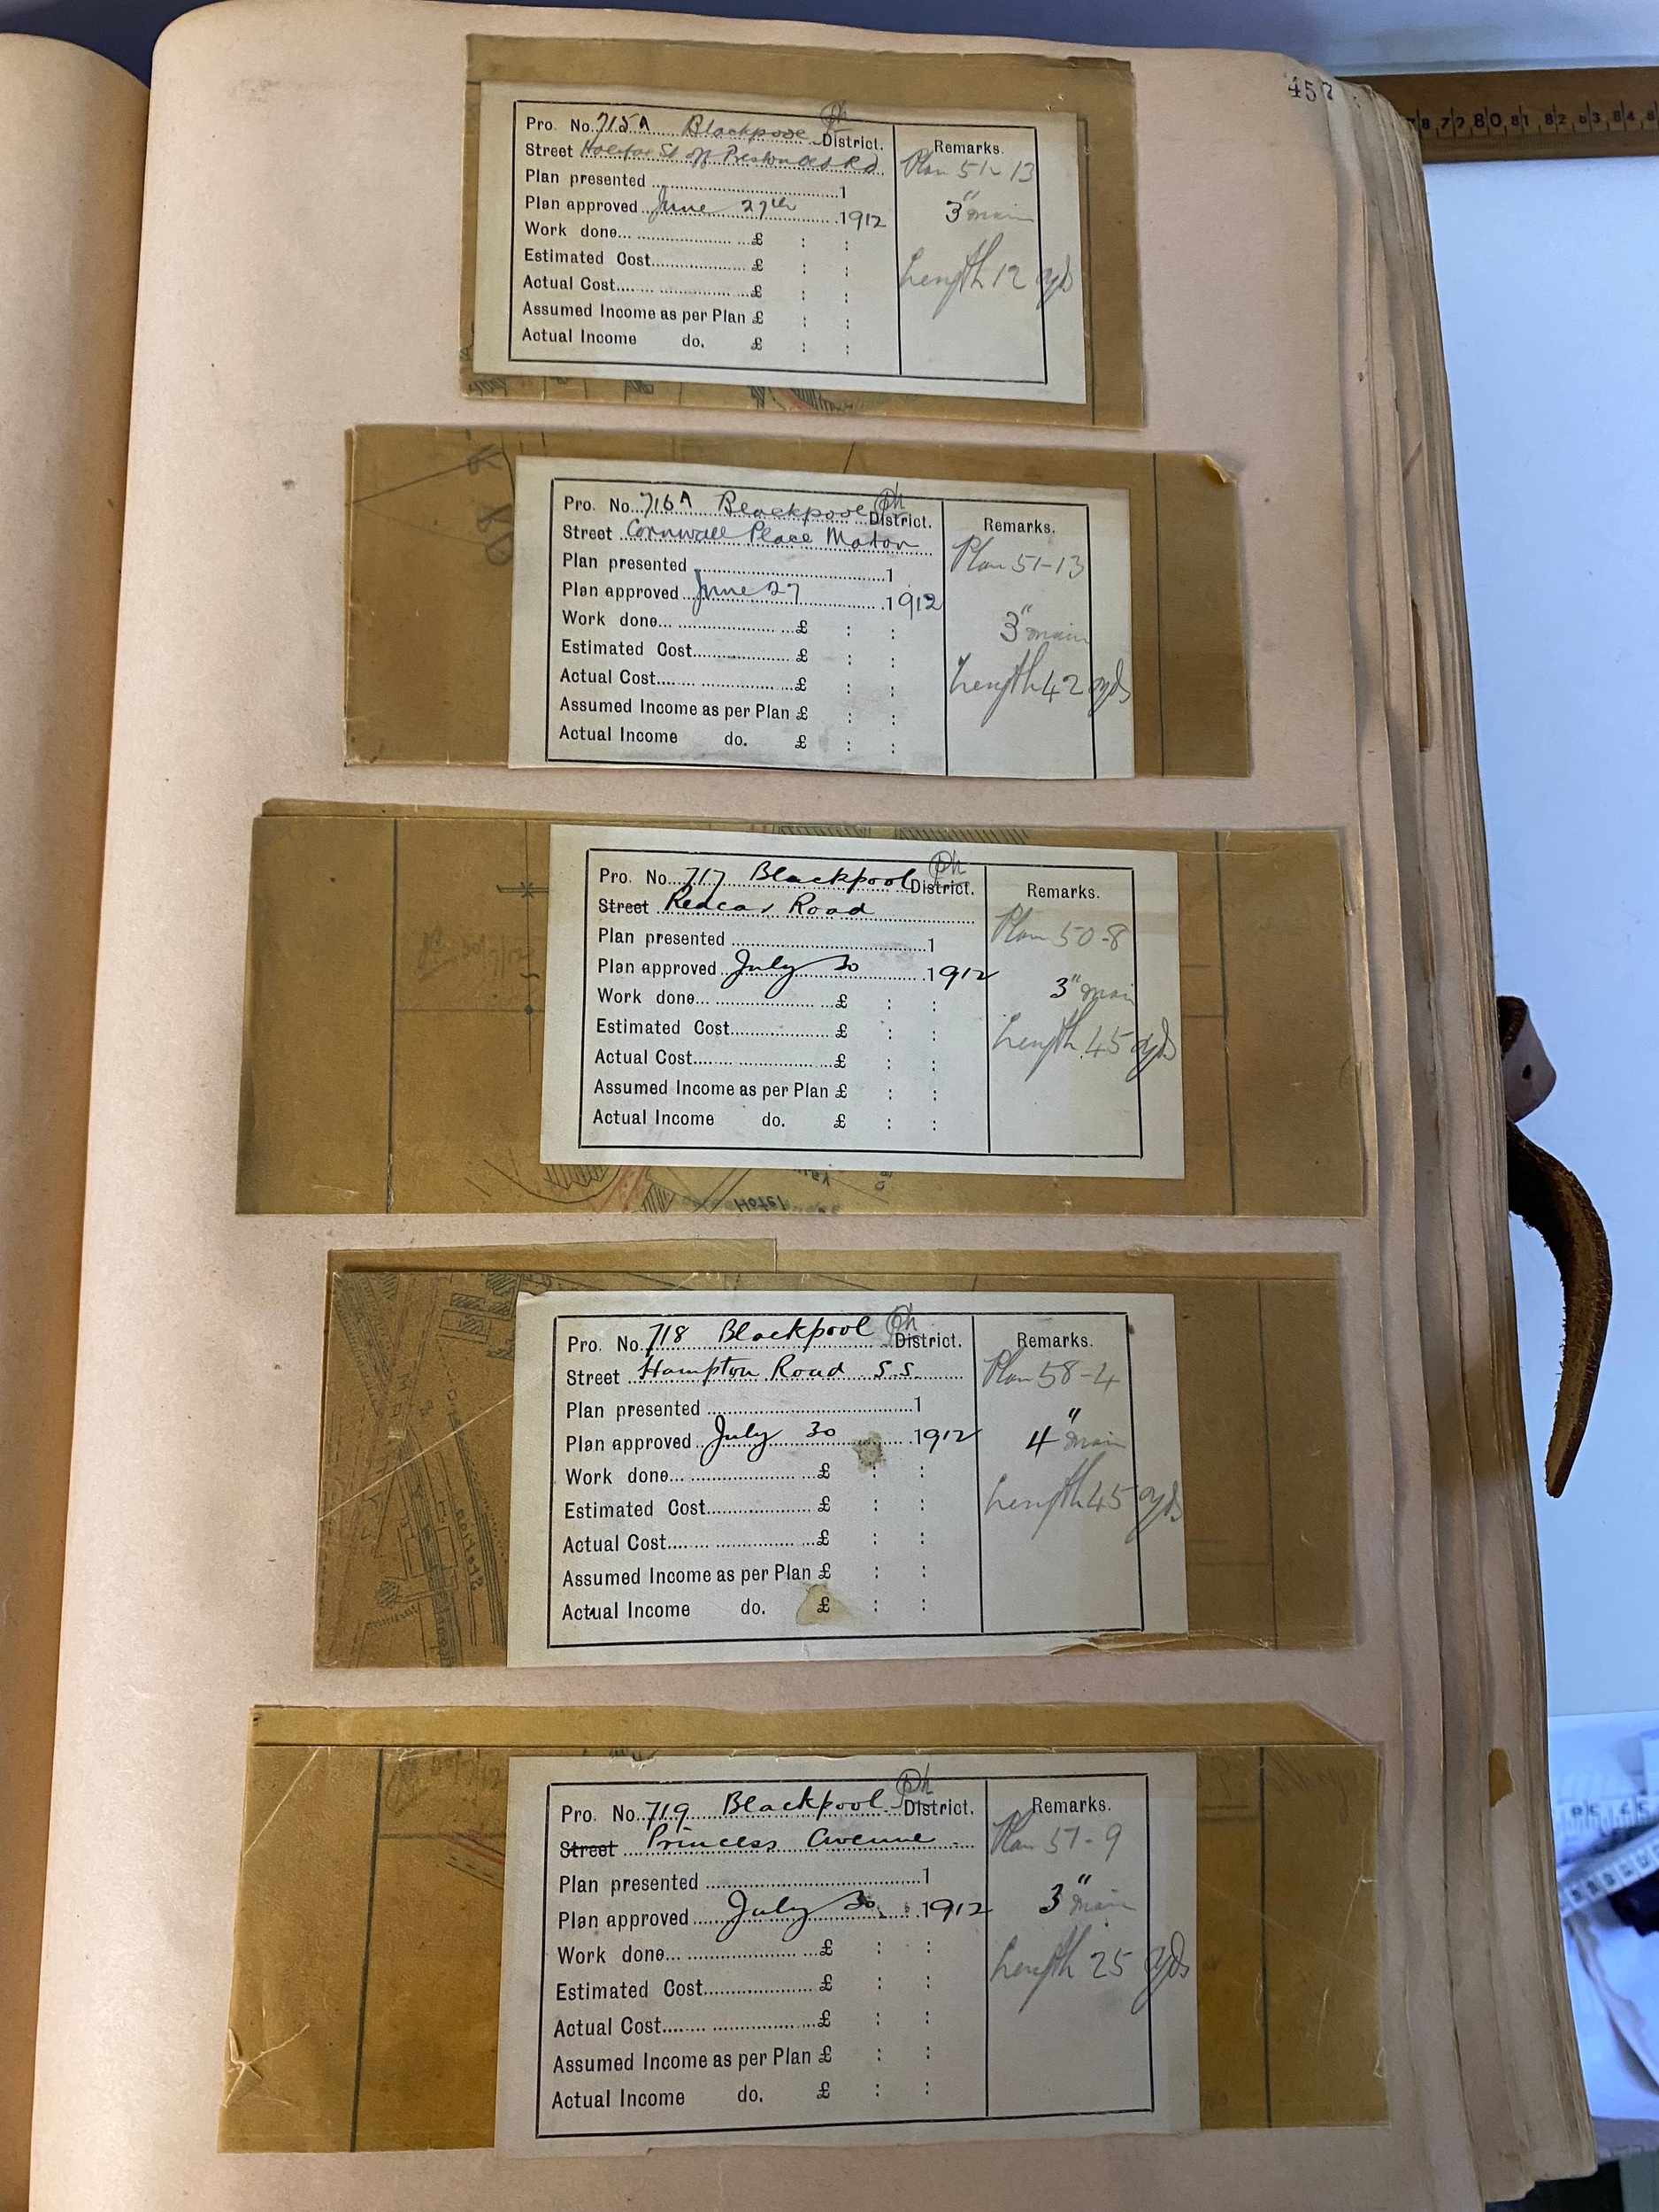 457
Pro. No. 715A Blackpool District. Ph
Street Halifax St off Preston Old Rd
Plan presented 1
Plan approved June 27th 1912
Work done... £ : :
Estimated Cost £ : :
Actual Cost £ : :
Assumed Income as per Plan £ : :
Actual Income do. £ : :
Remarks.
Plan 51-13
3" main
Length 12 yds
Pro. No. 716A Blackpool District. Ph
Street Cornwall Place Marton
Plan presented 1
Plan approved June 27 1912
Work done... £ : :
Estimated Cost £ : :
Actual Cost £ : :
Assumed Income as per Plan £ : :
Actual Income do. £ : :
Remarks.
Plan 51-13
3" main
Length 42 yds
Pro. No. 717 Blackpool District. Ph
Street Redcar Road
Plan presented 1
Plan approved July 30 1912
Work done... £ : :
Estimated Cost £ : :
Actual Cost £ : :
Assumed Income as per Plan £ : :
Actual Income do. £ : :
Remarks.
Plan 50-8
3" main
Length 45 yds
Hotel
Pro. No. 718 Blackpool District. Ph
Street Hampton Road S.S.
Plan presented 1
Plan approved July 30 1912
Work done... £ : :
Estimated Cost £ : :
Actual Cost £ : :
Assumed Income as per Plan £ : :
Actual Income do. £ : :
Remarks.
Plan 58-4
4" main
Length 45 yds
Pro. No. 719 Blackpool District. Ph
Street Princess Avenue
Plan presented 1
Plan approved July 30 1912
Work done... £ : :
Estimated Cost £ : :
Actual Cost £ : :
Assumed Income as per Plan £ : :
Actual Income do. £ : :
Remarks.
Plan 57-9
3" main
Length 25 yds
78 79 80 81 82 83 84